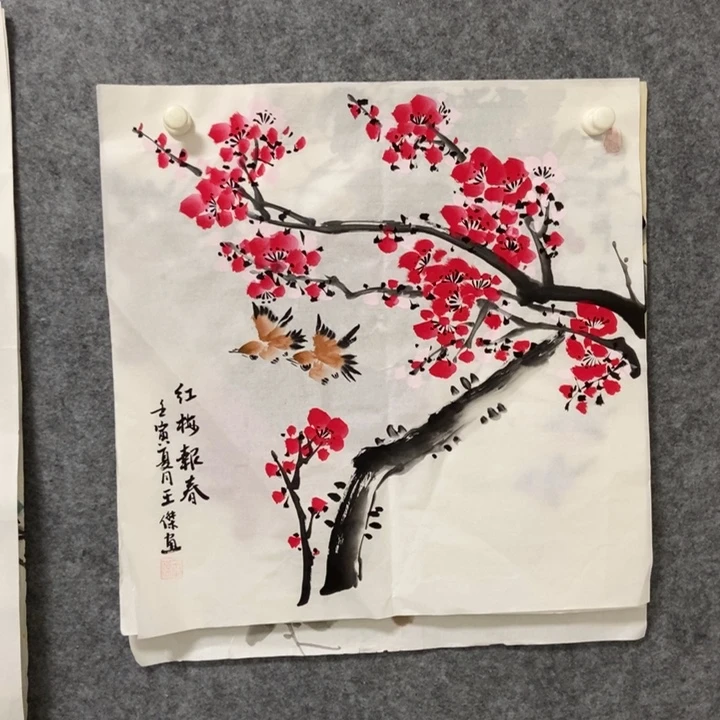 红梅報春
壬寅夏月王傑画